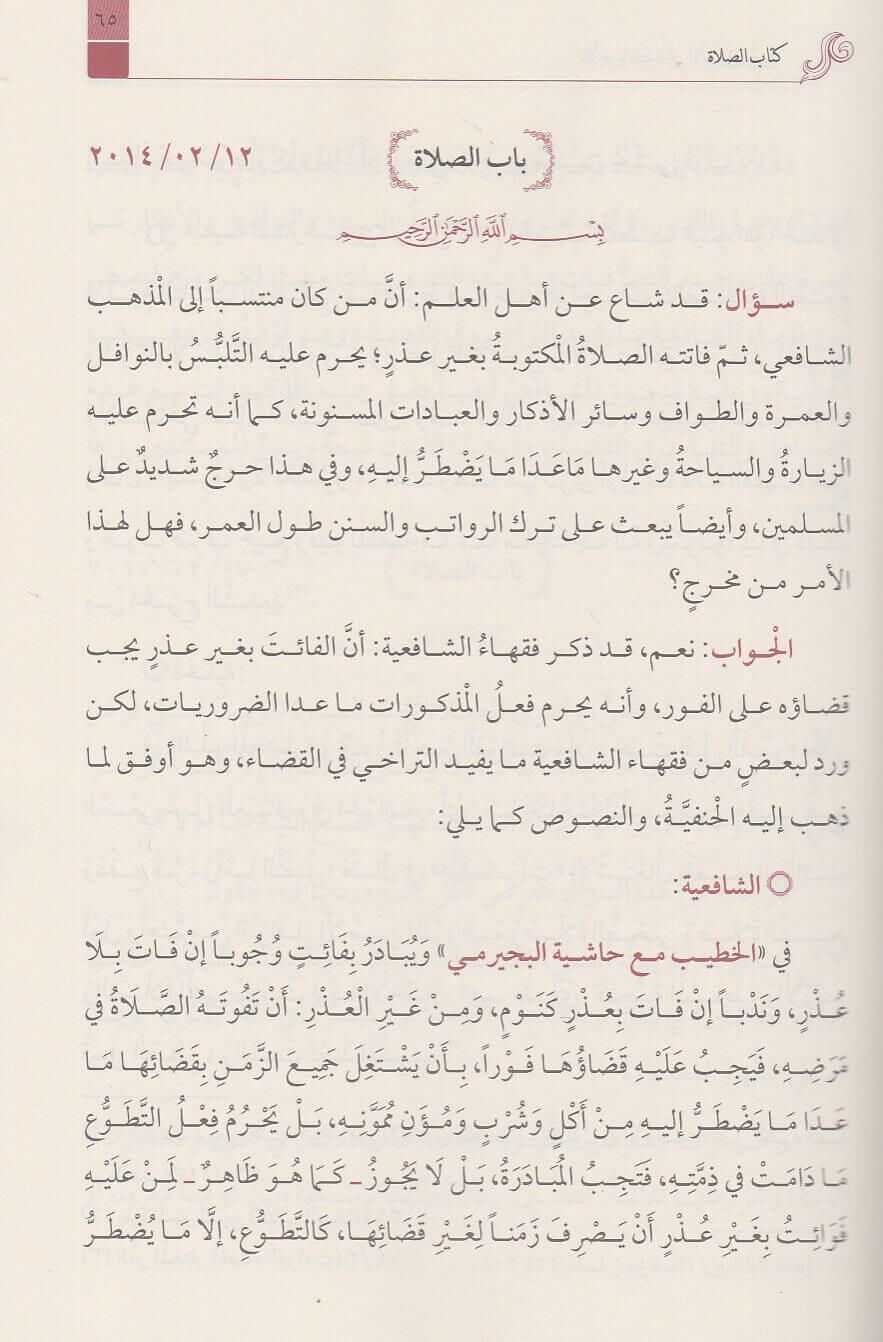 ٦٥
كتاب الصلاة
باب الصلاة
٢٠١٤/٠٢/١٢
بِسْمِ اللهِ الرَّحْمٰنِ الرَّحِيمِ
سؤال: قد شاع عن أهل العلم: أنَّ من كان منتسباً إلى الْمذهب
الشافعي، ثمّ فاتته الصلاةُ الْمكتوبةُ بغير عذرٍ؛ يحرم عليه التَّلبُّسُ بالنوافل
والعمرة والطواف وسائر الأذكار والعبادات المسنونة، كما أنه تحرم عليه
الزيارةُ والسياحةُ وغيرها مَاعَدَا مَا يَضْطَرُّ إليهِ، وفي هذا حرجٌ شديدٌ على
المسلمين، وأيضاً يبعث على ترك الرواتب والسنن طول العمر، فهل لهذا
الأمر من مخرجٍ؟
الْجواب: نعم، قد ذكر فقهاءُ الشافعية: أنَّ الفائتَ بغير عذرٍ يجب
قضاؤه على الفور، وأنه يحرم فعلُ الْمذكورات ما عدا الضروريات، لكن
ورد لبعضٍ من فقهاء الشافعية ما يفيد التراخي في القضاء، وهو أوفق لما
ذهب إليه الْحنفيَّةُ، والنصوص كما يلي:
الشافعية:
في «الخطيب مع حاشية البجيرمي» وَيُبَادَرُ بِفَائِتٍ وُجُوباً إنْ فَاتَ بِلَا
عُذْرٍ، وَنَدْباً إنْ فَاتَ بِعُذْرٍ كَنَوْمٍ، وَمِنْ غَيْرِ الْعُذْرِ: أَنْ تَفُوتَهُ الصَّلَاةُ في
مَرَضِهِ، فَيَجِبُ عَلَيْهِ قَضَاؤُهَا فَوْراً، بِأَنْ يَشْتَغِلَ جَمِيعَ الزَّمَنِ بِقَضَائِهَا مَا
عَدَا مَا يَضْطَرُّ إليهِ مِنْ أَكْلٍ وَشُرْبٍ وَمُؤَنِ مُمَوَّنِهِ، بَلْ يَحْرُمُ فِعْلُ التَّطَوُّعِ
مَا دَامَتْ في ذِمَّتِهِ، فَتَجِبُ الْمُبَادَرَةُ، بَلْ لَا يَجُوزُ ـ كَمَا هُوَ ظَاهِرٌ ـ لِمَنْ عَلَيْهِ
فَوَائِتُ بِغَيْرِ عُذْرٍ أَنْ يَصْرِفَ زَمَناً لِغَيْرِ قَضَائِهَا، كَالتَّطَوُّعِ، إلَّا مَا يُضْطَرُّ